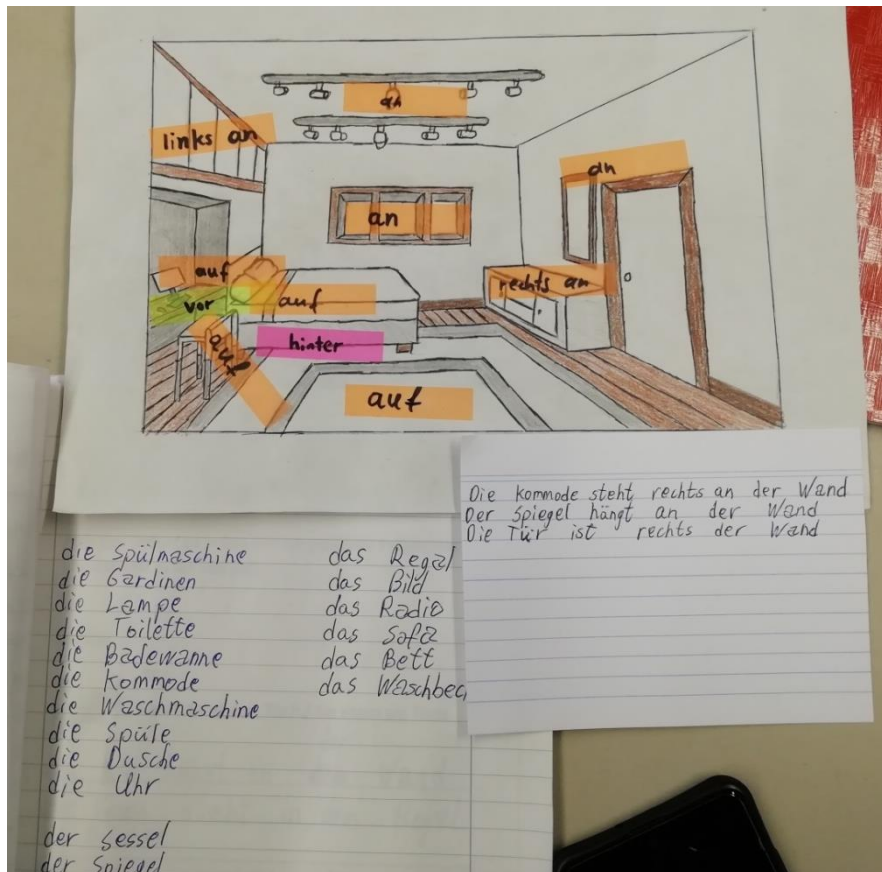 an
links an
an
an
auf
rechts an
vor
auf
hinter
auf
auf
Die Kommode steht rechts an der Wand
Der Spiegel hängt an der Wand
Die Tür ist rechts der Wand
die Spülmaschine
die Gardinen
die Lampe
die Toilette
die Badewanne
die Kommode
die Waschmaschine
die Spüle
die Dusche
die Uhr
der Sessel
der Spiegel
das Regal
das Bild
das Radio
das Sofa
das Bett
das Waschbec